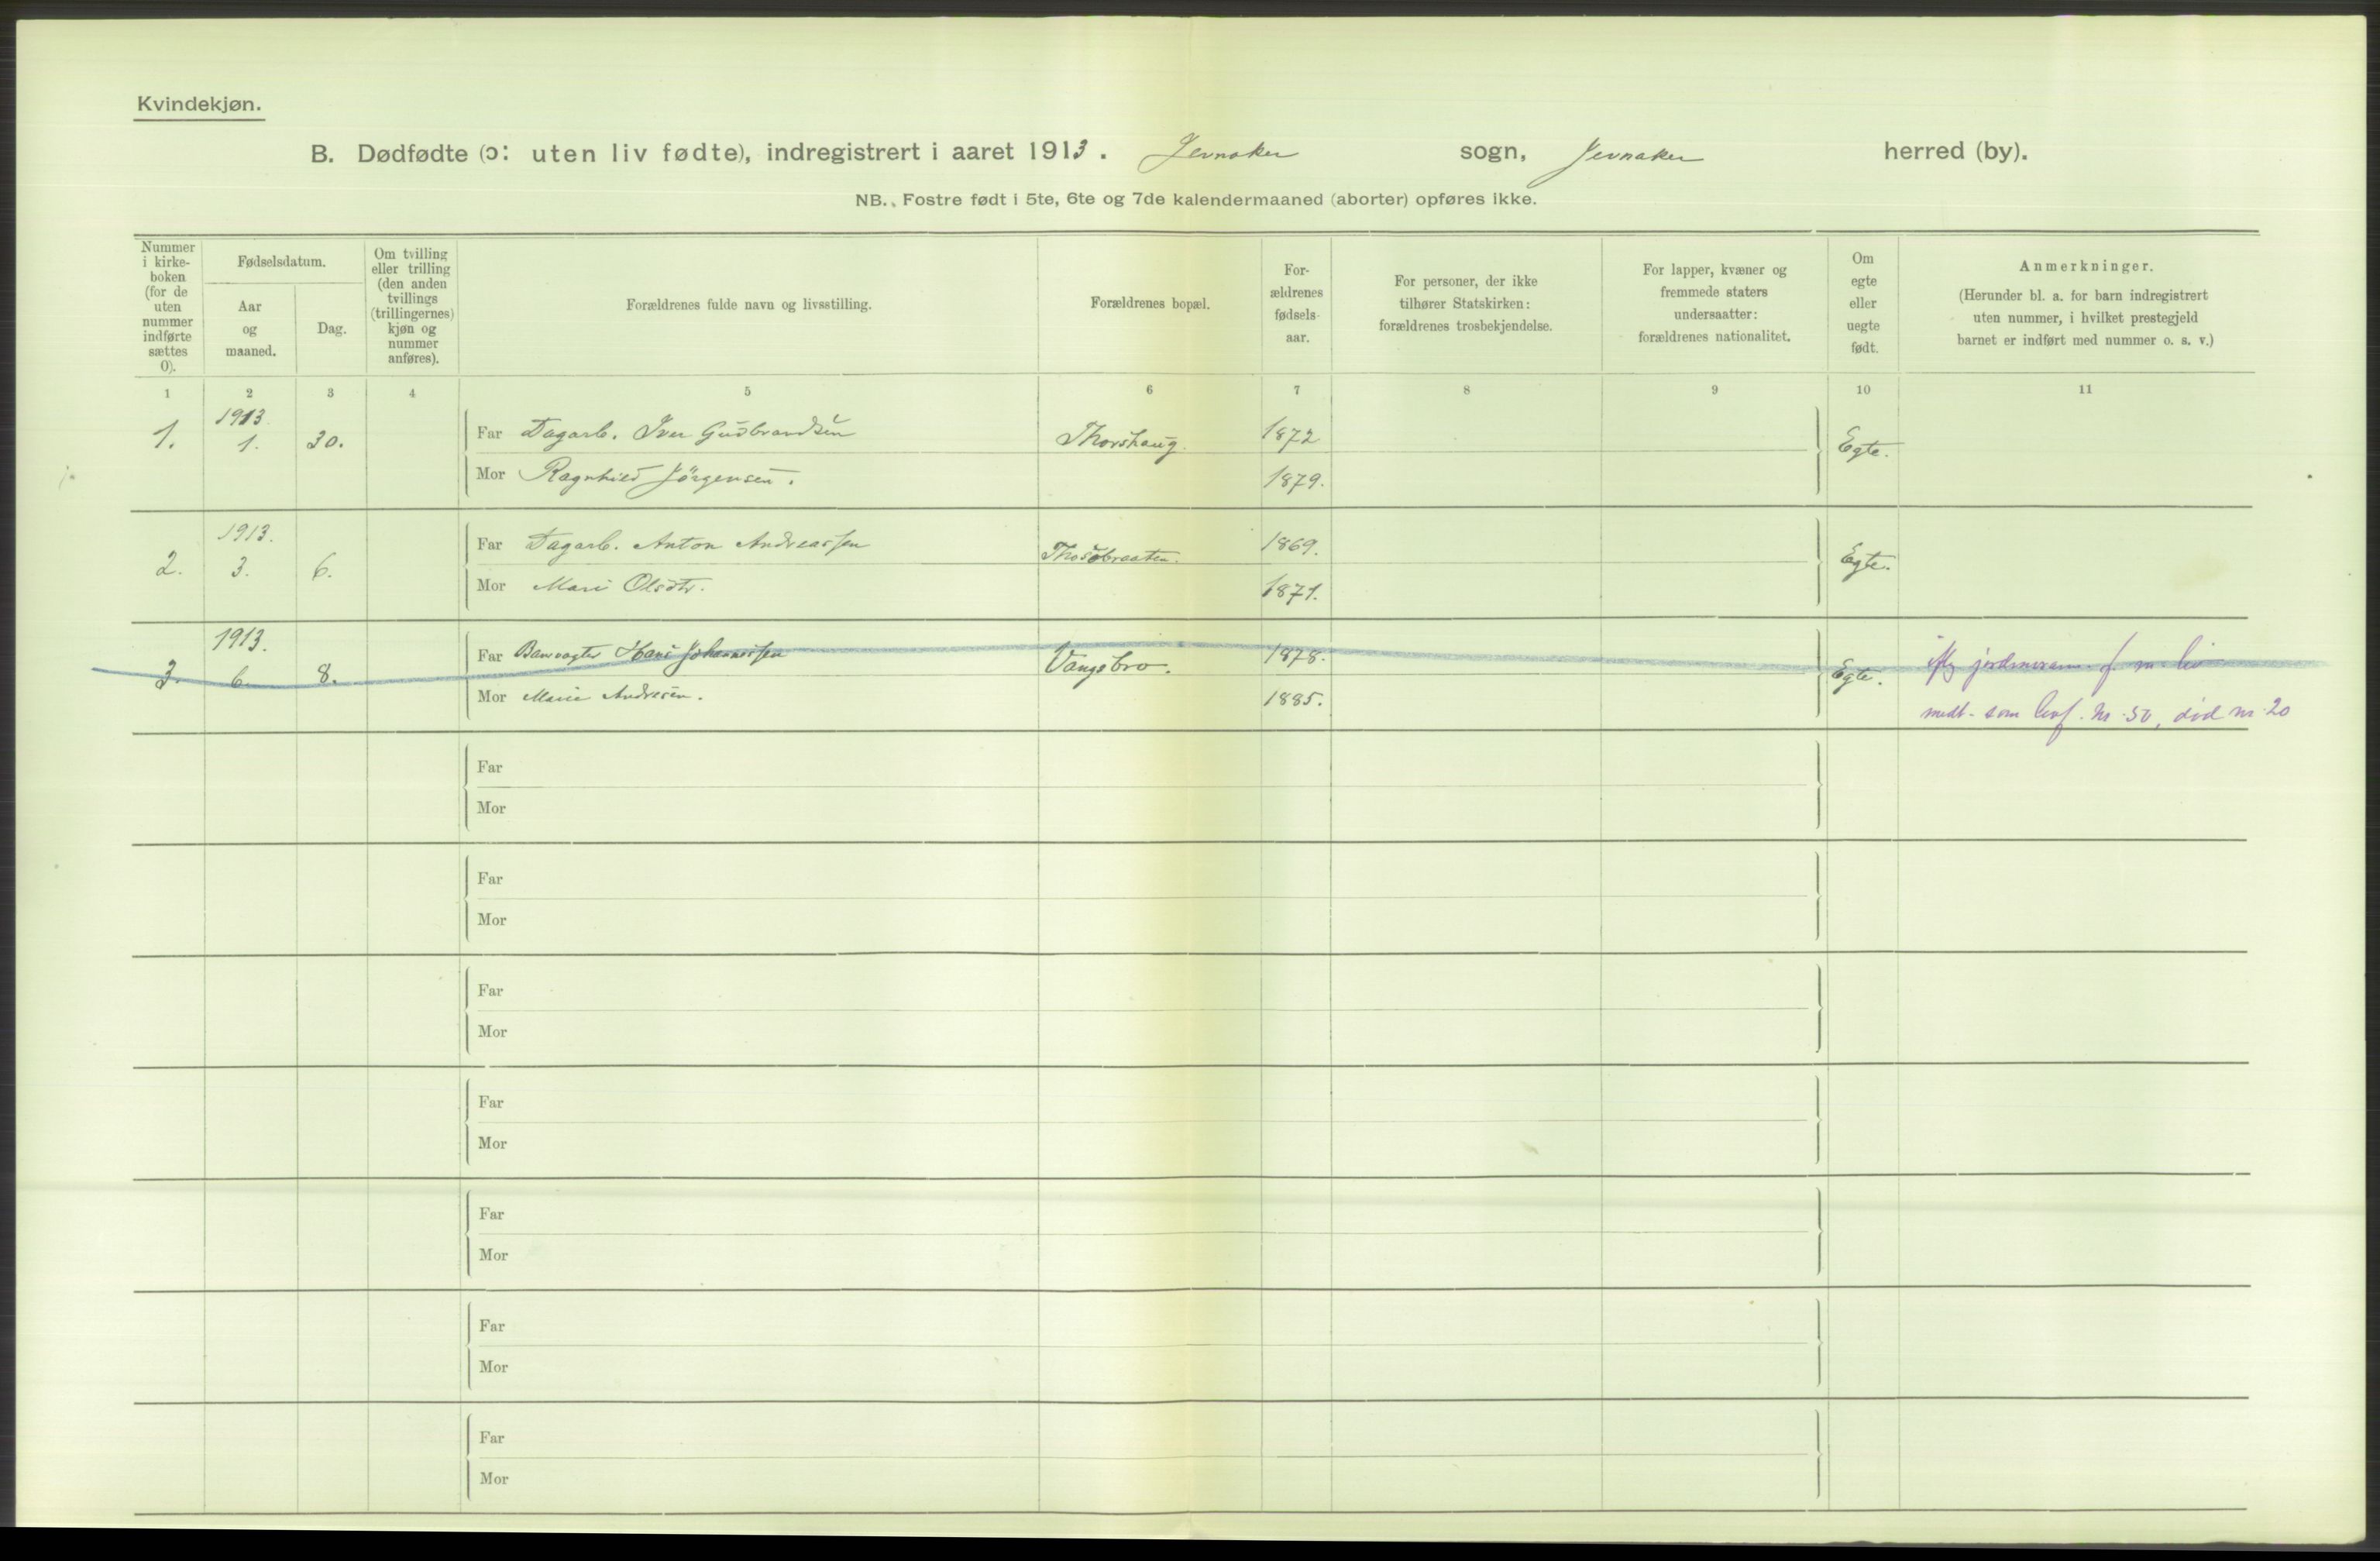 Kvindekjøn.
B. Dødfødte (ɔ: uten liv fødte), indregistrert i aaret 1913. Jevnaker sogn, Jevnaker herred (by).
NB. Fostre født i 5te, 6te og 7de kalendermaaned (aborter) opføres ikke.
Nummer i kirke-boken (for de uten nummer indførte sættes 0).
Fødselsdatum.
Aar og maaned.
Dag.
Om tvilling eller trilling (den anden tvillings (trillingernes) kjøn og nummer anføres).
Forældrenes fulde navn og livsstilling.
Forældrenes bopæl.
For-ældrenes fødsels-aar.
For personer, der ikke tilhører Statskirken: forældrenes trosbekjendelse.
For lapper, kvæner og fremmede staters undersaatter: forældrenes nationalitet.
Om egte eller uegte født.
Anmerkninger.
(Herunder bl. a. for barn indregistrert uten nummer, i hvilket prestegjeld barnet er indført med nummer o. s. v.)
1 2 3 4 5 6 7 8 9 10 11
1913.
1. 1. 30. Far Dagarb. Iver Gudbrandsen Thorshaug. 1872 Egte.
Mor Ragnhild Jörgensen. 1879.
1913.
2. 3. 6. Far Dagarb. Anton Andreassen 1869. Egte.
Mor Mari Olsdtr. 1871.
1913.
3. 6. 8. Far Banevogter Hans Johannessen Vangsbro. 1878. Egte. jordmoram. f. m. liv
Mor Marie Andresen. 1885. medt. som levf. nr. 50, död nr. 20
Far
Mor
Far
Mor
Far
Mor
Far
Mor
Far
Mor
Far
Mor
Far
Mor